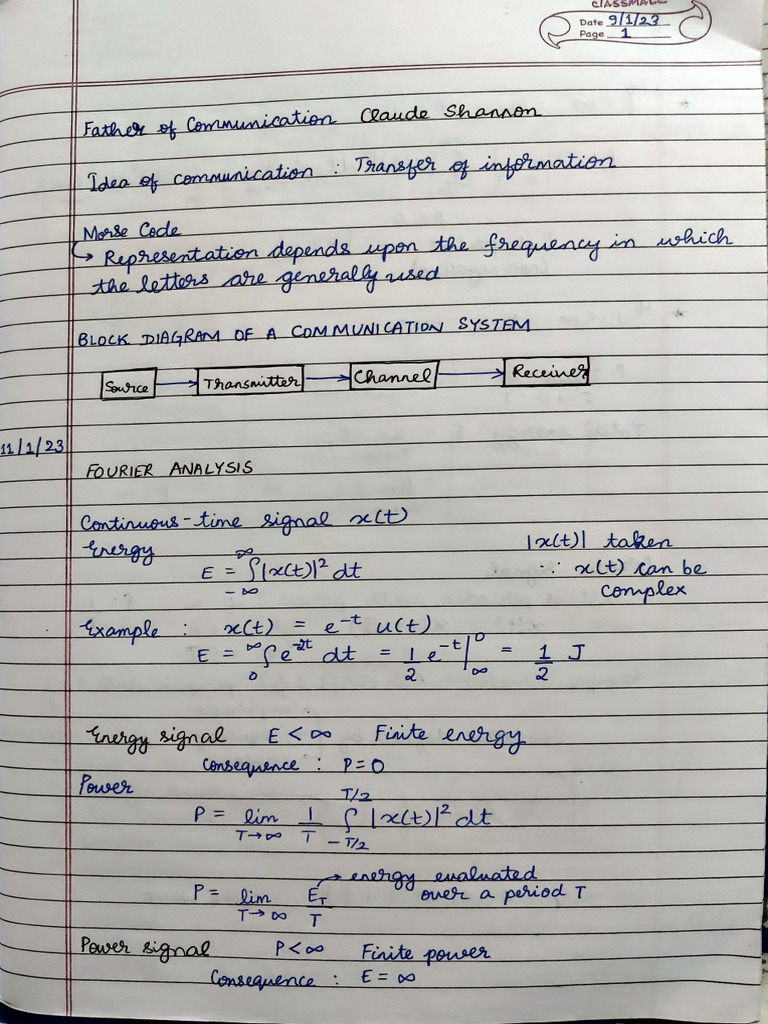 CLASSMATE
Date 9/1/23
Page 1
Father of Communication Claude Shannon
Idea of communication : Transfer of information
Morse Code
→ Representation depends upon the frequency in which
the letters are generally used
BLOCK DIAGRAM OF A COMMUNICATION SYSTEM
Source → Transmitter → Channel → Receiver
11/1/23
FOURIER ANALYSIS
Continuous-time signal x(t)
Energy
E = ∫_{-∞}^{∞} |x(t)|² dt
|x(t)| taken
∵ x(t) can be
complex
Example : x(t) = e^{-t} u(t)
E = ∫_0^∞ e^{-2t} dt = 1/2 e^{-t} |_∞^0 = 1/2 J
Energy signal E < ∞ Finite energy
Consequence : P = 0
Power
P = lim_{T→∞} 1/T ∫_{-T/2}^{T/2} |x(t)|² dt
P = lim_{T→∞} E_T/T → energy evaluated
over a period T
Power signal P < ∞ Finite power
Consequence : E = ∞